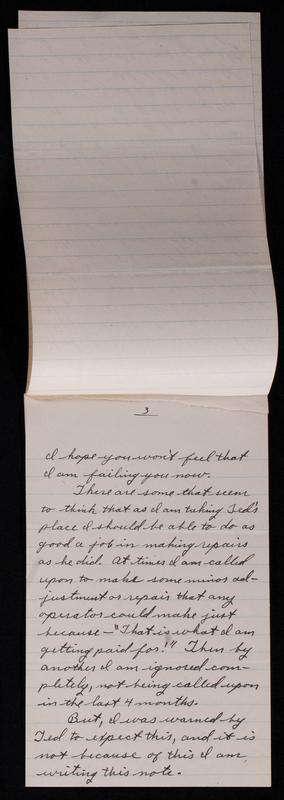 3
I hope you won't feel that
I am failing you now.
There are some that seem
to think that as I am taking Ted's
place I should be able to do as
good a job in making repairs
as he did. At times I am called
upon to make some minor ad-
justment or repair that any
operator could make just
because - "That is what I am
getting paid for!" Then by
another I am ignored com-
pletely, not being called upon
in the last 4 months.
But, I was warned by
Ted to expect this, and it is
not because of this I am
writing this note.